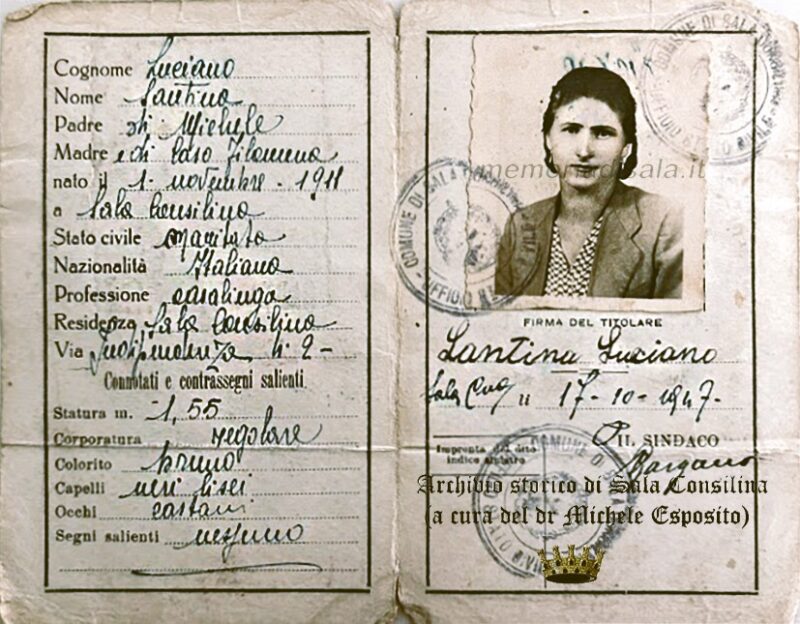 Cognome Luciano
Nome Santina
Padre di Michele
Madre e di Caso Filomena
nato il 1- novembre - 1911
a Sala Consilina
Stato civile maritata
Nazionalità Italiana
Professione casalinga
Residenza Sala Consilina
Via Indipendenza n. 2-
Connotati e contrassegni salienti
Statura m. 1,55
Corporatura regolare
Colorito bruno
Capelli neri lisci
Occhi castani
Segni salienti nessuno
COMUNE DI SALA CONSILINA
UFFICIO
memoriadisala.it
COMUNE DI SALA
UFFICIO
FIRMA DEL TITOLARE
Santina Luciano
Sala 17-10-1947-
IL SINDACO
Impronta del dito
indice sinistro
COMUNE DI
Archivio storico di Sala Consilina
(a cura del dr Michele Esposito)